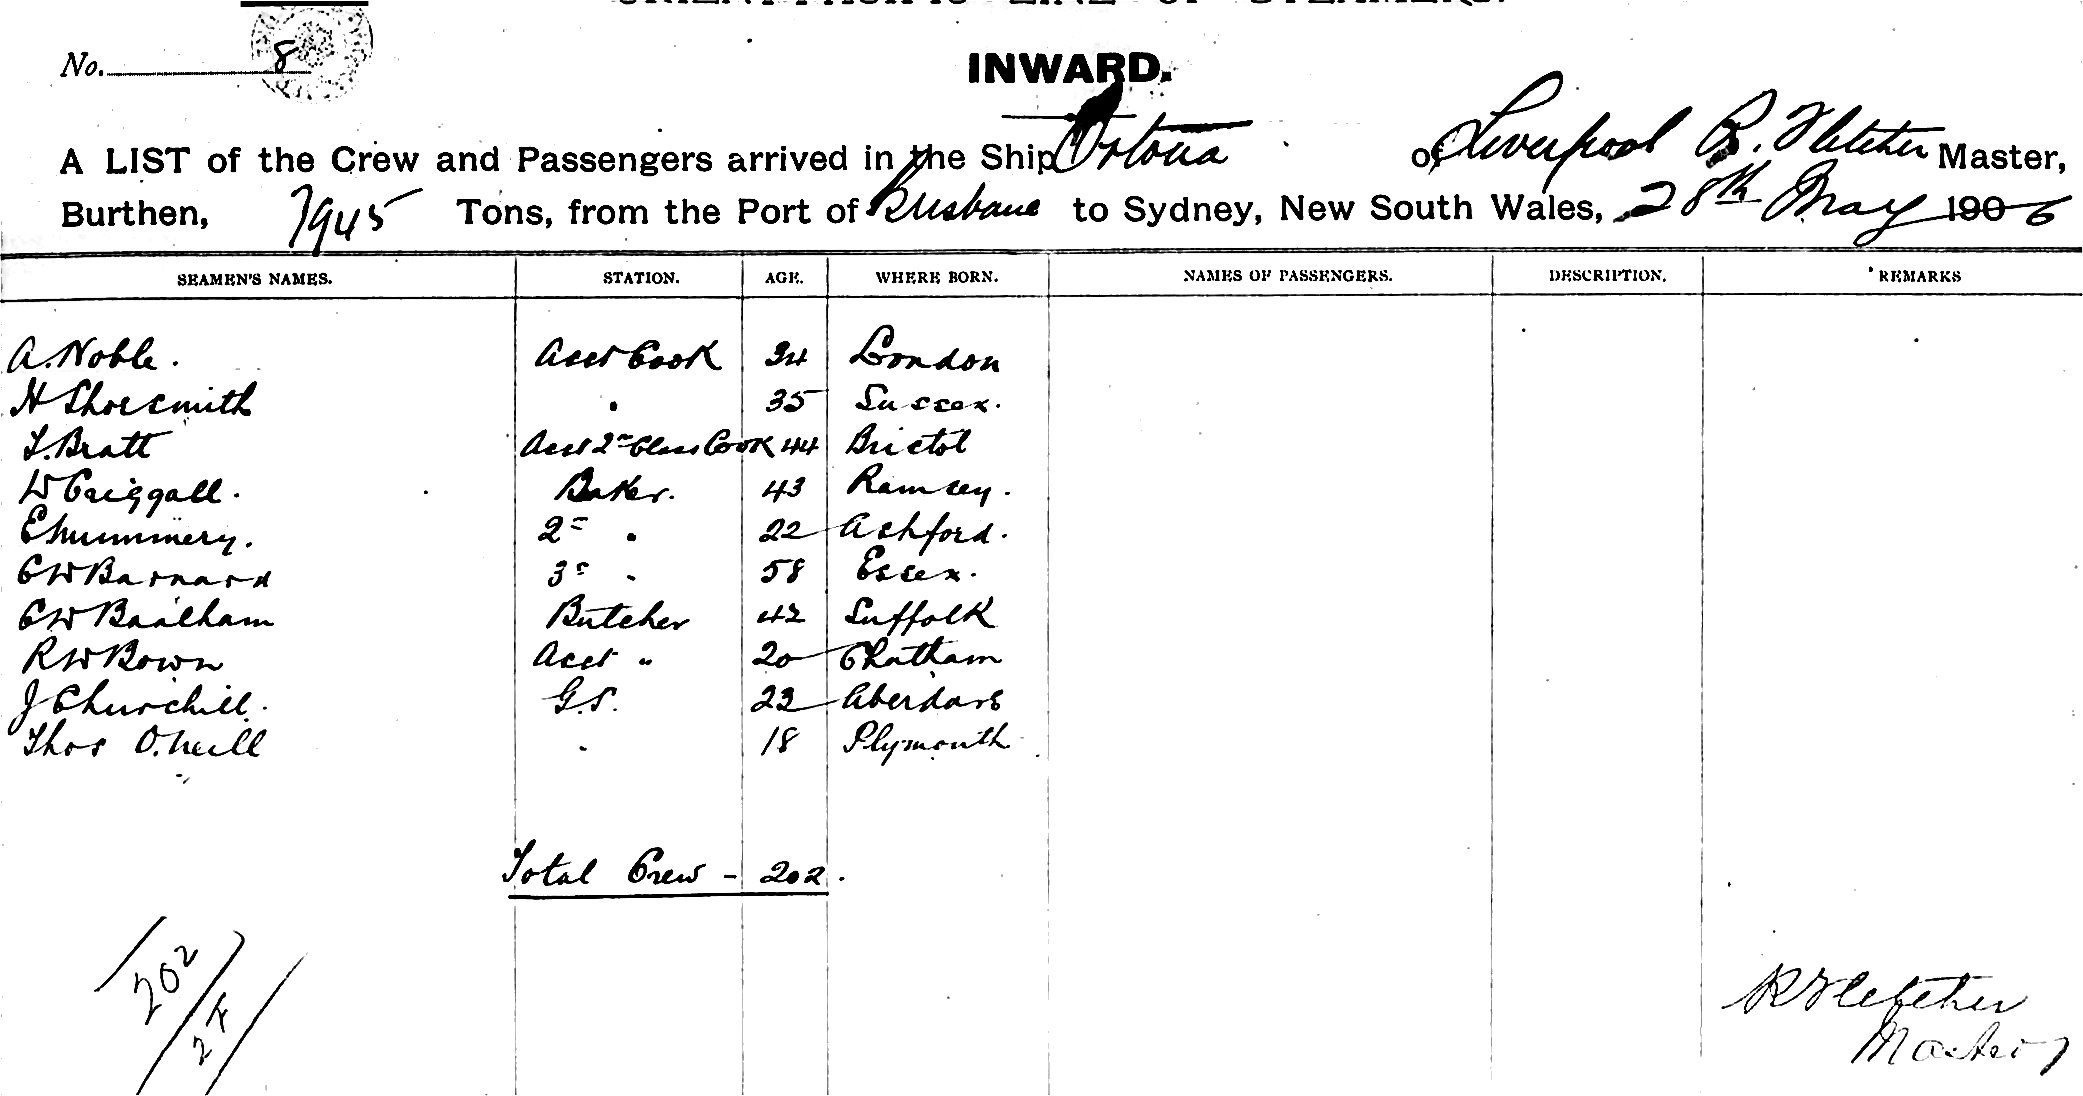 ORIENT-PACIFIC LINE OF STEAMERS.
No. 8
INWARD.
A LIST of the Crew and Passengers arrived in the Ship Ortona of Liverpool R. Fletcher Master,
Burthen, 7945 Tons, from the Port of Brisbane to Sydney, New South Wales, 28th May 1906
SEAMEN'S NAMES. STATION. AGE. WHERE BORN. NAMES OF PASSENGERS. DESCRIPTION. REMARKS
A. Noble. Asst Cook 34 London
H Shoesmith " 35 Sussex.
T. Bratt Asst 2nd Class Cook 44 Bristol
W Criggall. Baker. 43 Ramsey.
E hummery. 2nd " 22 Ashford.
C W Barnard 3rd " 58 Essex.
C W Baalham Butcher 42 Suffolk
R W Bown Asst " 20 Chatham
J Churchill. G.S. 23 Aberdare
Thos O.Neill " 18 Plymouth
Total Crew - 202.
202
R Fletcher
Master